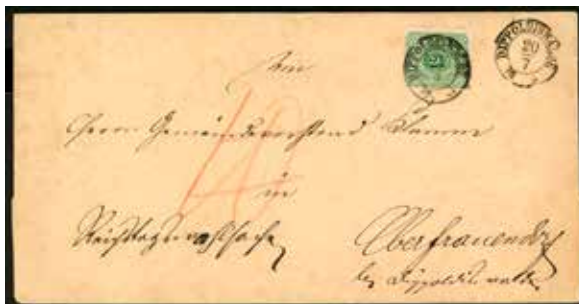 DIPPOLDISW
20
7
An
Herrn Gemeindevorstand
in
Reichstagswahlsache
Oberfrauendorf
bei Dippoldiswalde